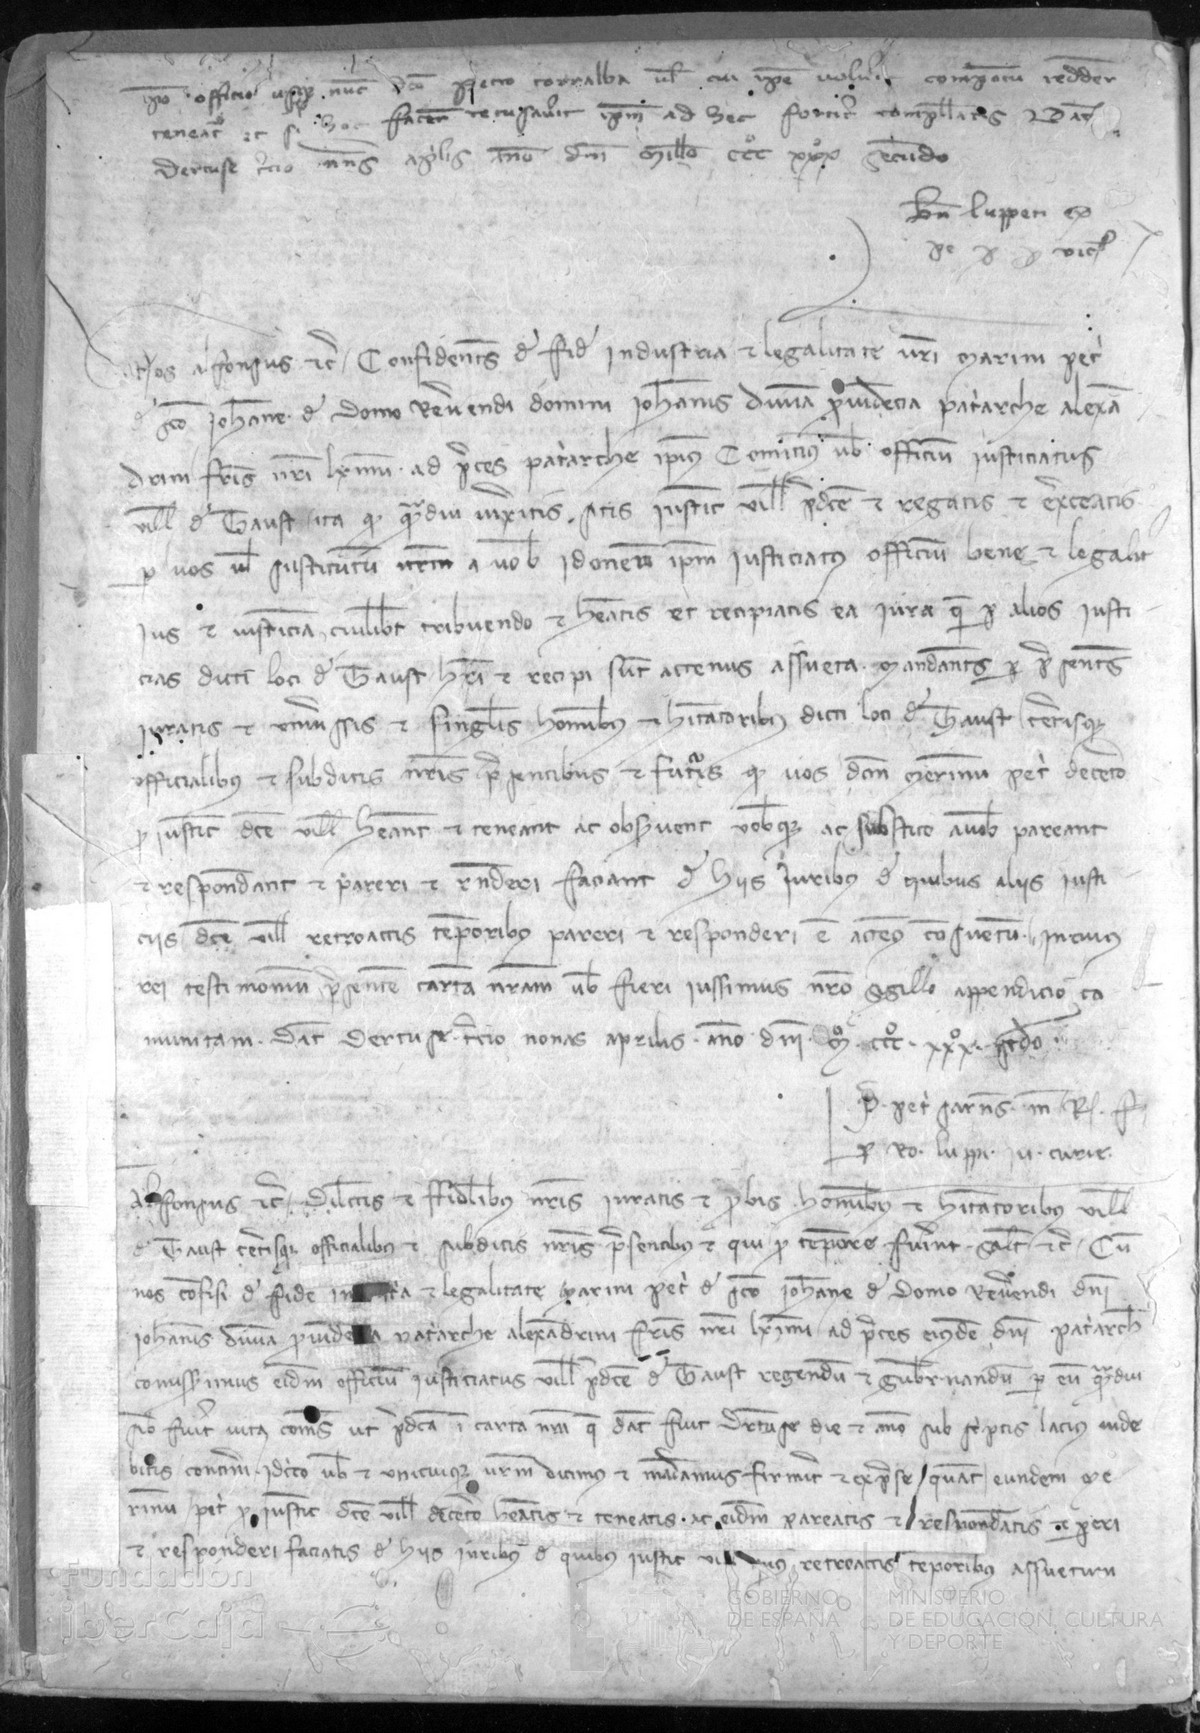 ipo officio usque nunc dco Petro torralba ul cui ipe voluit compotum redder
teneat et si hoc facer recusaverit ipm ad hec fortit compellatis Dat
dertuse tcio nns aplis anno dni millo ccc xxx secundo
Bn luppeti
Nos Alfonsus etc Confidents de fide industria et legalitate vri Marini pet
de sco Johane de domo Reverendi domini Johannis divina providencia patarche alexan
drini fris nri kmi ad preces patarche ipius Comitimus vob officium iusticiatus
vill de Thaust ita quod quamdiu vixeritis sitis iustic vill pdce et regatis et exerceatis
p vos vel substitutum vrm a vob idoneum ipm iusticiatus officium bene et legalit
ius et iusticiam cuilibet tribuendo et heatis et recipiatis ea iura que p alios iusti
cias dicti loci de Thaust heri et recipi sunt actenus assueta Mandants p presents
iuratis et universis et singlis hominibus et hitatoribus dicti loci de Thaust ceterisque
officialibus et subditis nris presentibus et futuris quod vos dcm Merinum pet decetero
p iustic dce vill heant et teneant ac observent vobque ac substito a vob pareant
et respondeant et pareri et rnderi faciant de hiis iuribus de quibus aliis iusti
ciis dce vill retroactis temporibus pareri et responderi e actenus consuetum In cuius
rei testimonium presentem cartam nram vob fieri iussimus nro sigillo appendicio co
munitam Dat Dertuse tcio nonas aprilis anno dni Mo ccco xxxo scdo
P pet garns m R f
p Ro luppi in curie
Alfonsus etc Dilectis et fidelibus nris iuratis et probis hominibus et hitatoribus vill
de Thaust ceterisque officialibus et subditis nris presentibus et qui p tempore fuerint Salt etc Cum
nos confisi de fide in et legalitate Marini pet de sco Johane de domo Reverendi dni
Johannis divina provide a patarche alexandrini fris nri kmi ad preces eiusdem dni patarch
comisimus eidem officium iusticiatus vill pdce de Thaust regendum et gubernandum p eum quamdiu
sibi fuerit vita comes ut pdca in carta nra que dat fuit Dertuse die et anno sub scriptis lacius vide
bitis contineri Idcirco vob et unicuique vrm dicimus et mandamus firmit et expresse quat eundem Me
rinum pet p iustic dce vill decetero heatis et teneatis ac eidem pareatis et respondeatis et pareri
et responderi faciatis de hiis iuribus de quibus iustic vill retroactis temporibus assuetum
Fundación
iberCaja
GOBIERNO
DE ESPAÑA
MINISTERIO
DE EDUCACIÓN, CULTURA
Y DEPORTE